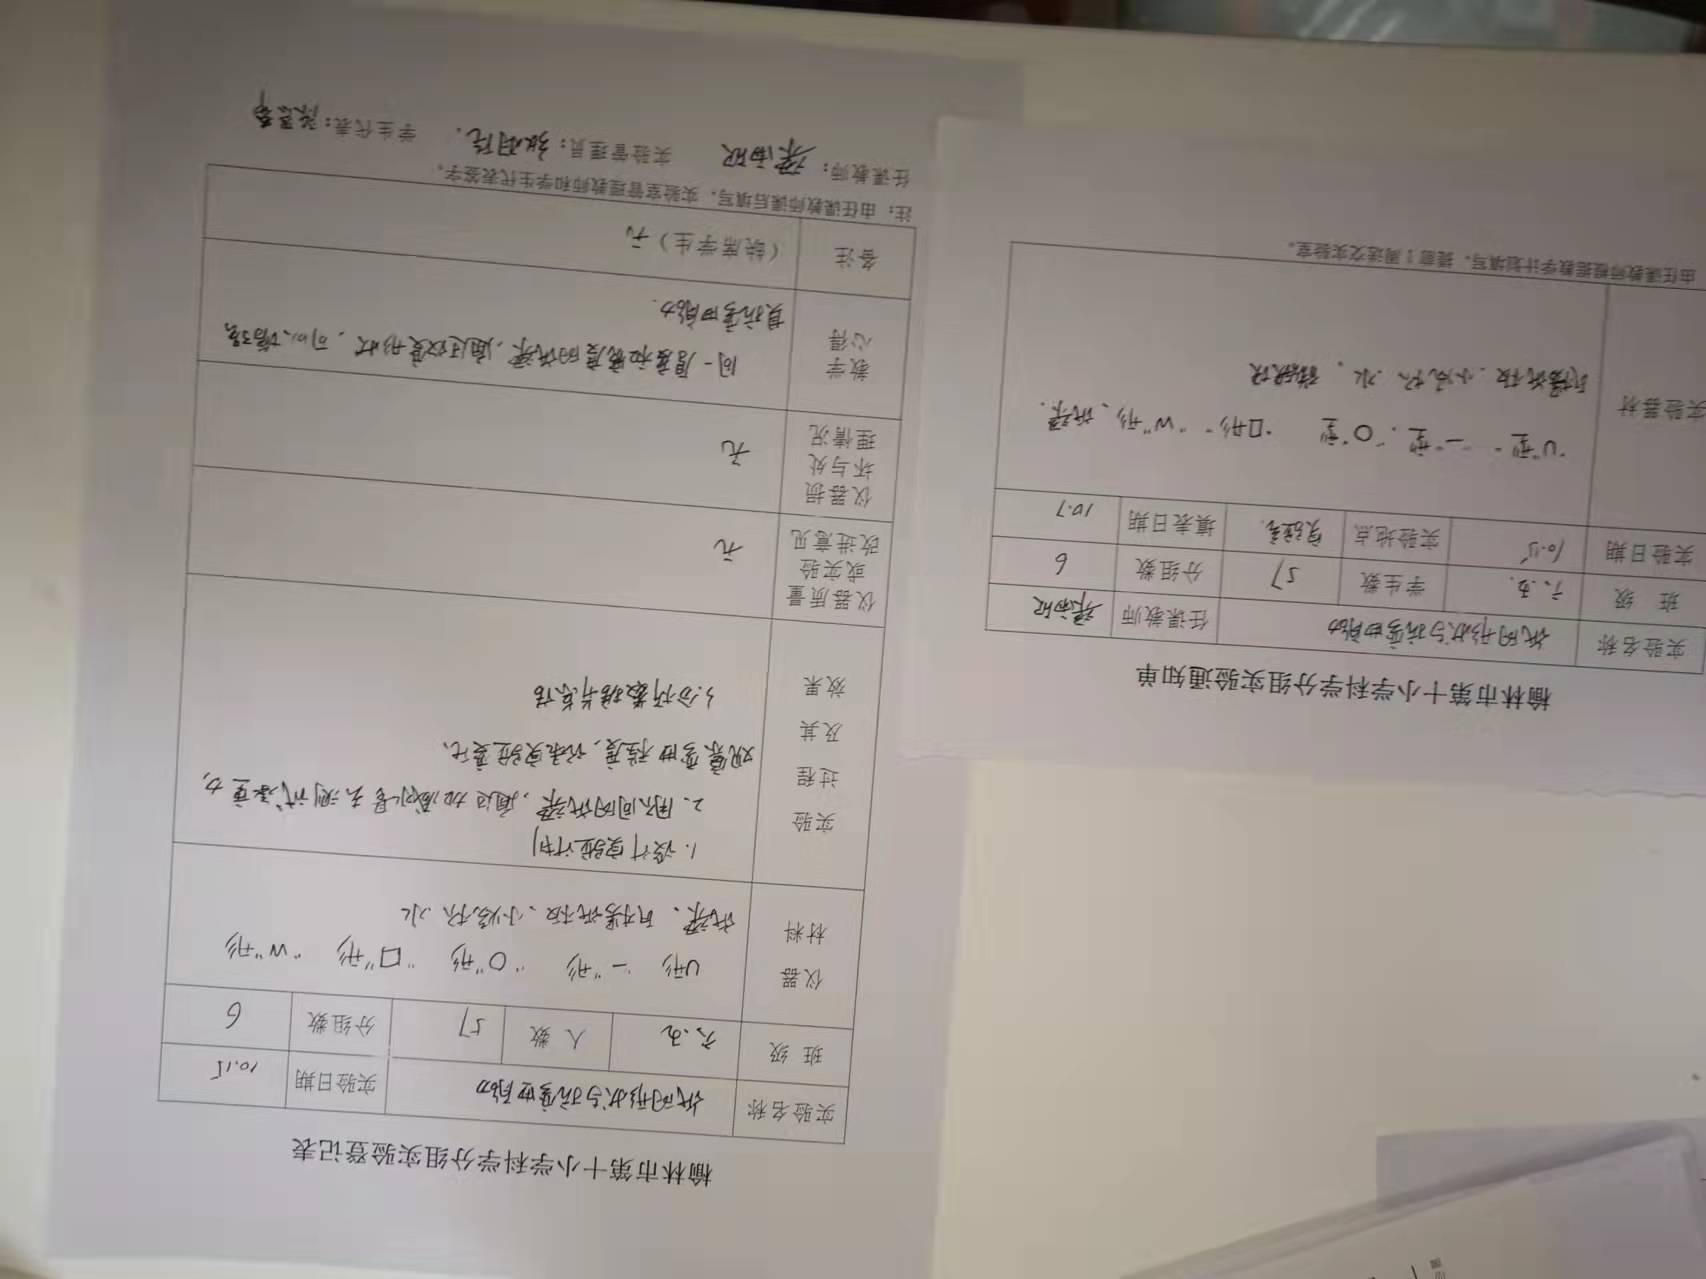 榆林市第十小学科学分组实验登记表
实验名称 纸的形状与抗弯曲能力 实验日期 10.15
班 级 六.五 人 数 57 分组数 6
仪器材料 U形 "一"形 "O"形 "口"形 "W"形
纸梁、瓦楞纸板、小烧杯、水
实验过程及其效果 1.设计实验计划
2.用不同的纸梁,通过加减 测试承重力,
观察弯曲程度,记录实验变化、
3.分析数据并总结
仪器质量或实验改进意见 无
仪器损坏与处理情况 无
教学心得 同一厚度和宽度的纸梁,通过改变形状,可以增强
其抗弯曲能力.
备注 (缺席学生)无
注:由任课教师课后填写,实验室管理教师和学生代表签字。
任课教师: 实验管理员: 学生代表:
榆林市第十小学科学分组实验通知单
实验名称 纸的形状与抗弯曲能力 任课教师
班 级 六.五 学生数 57 分组数 6
实验日期 10.15 实验地点 实验室 填表日期 10.7
实验器材 "U"型 "一"型、"O"型 "口形" "W"形、纸梁.
瓦楞纸板、小烧杯、水、
由任课教师根据教学计划填写,提前1周送交实验室。